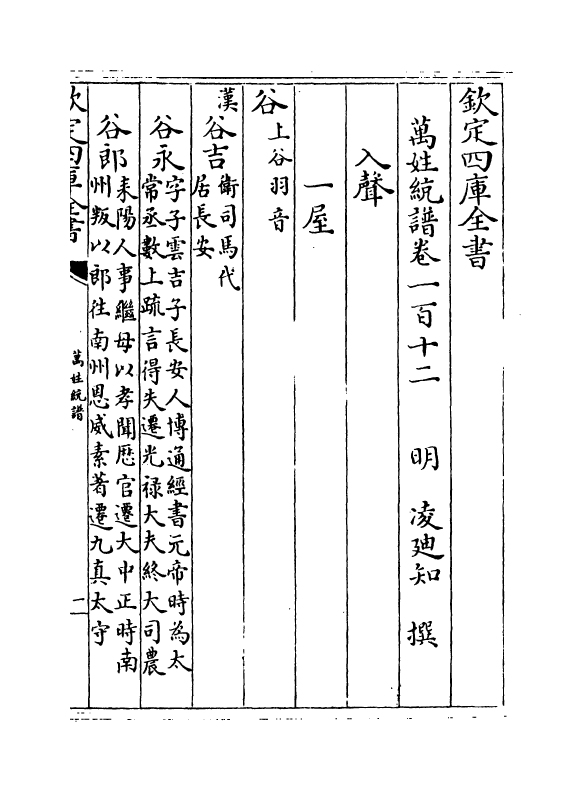 欽定四庫全書
萬姓統譜卷一百十二　明　凌廸知　撰
入聲
一屋
谷上谷羽音
漢谷吉衛司馬代
居長安
谷永字子雲吉子長安人博通經書元帝時為太
常丞數上疏言得失遷光禄大夫終大司農
谷郎耒陽人事繼母以孝聞歷官遷大中正時南
州叛以郎往南州恩威素著遷九真太守
欽定四庫全書
萬姓統譜
一